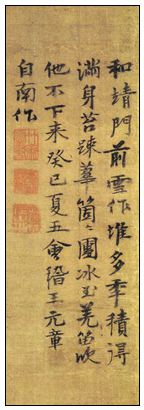 和靖門前雪作堆多季積得
滿身苔踈華箇〻團冰玉羌笛吹
他不下来癸巳夏五會稽王元章
自南作